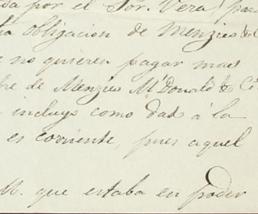 por el Sor. Vera
obligacion de Menzies &
no quieren pagar mas
de Menzies McDonald & Co
incluyo como dad á la
es corriente, pues aquel
M. que estaba en poder